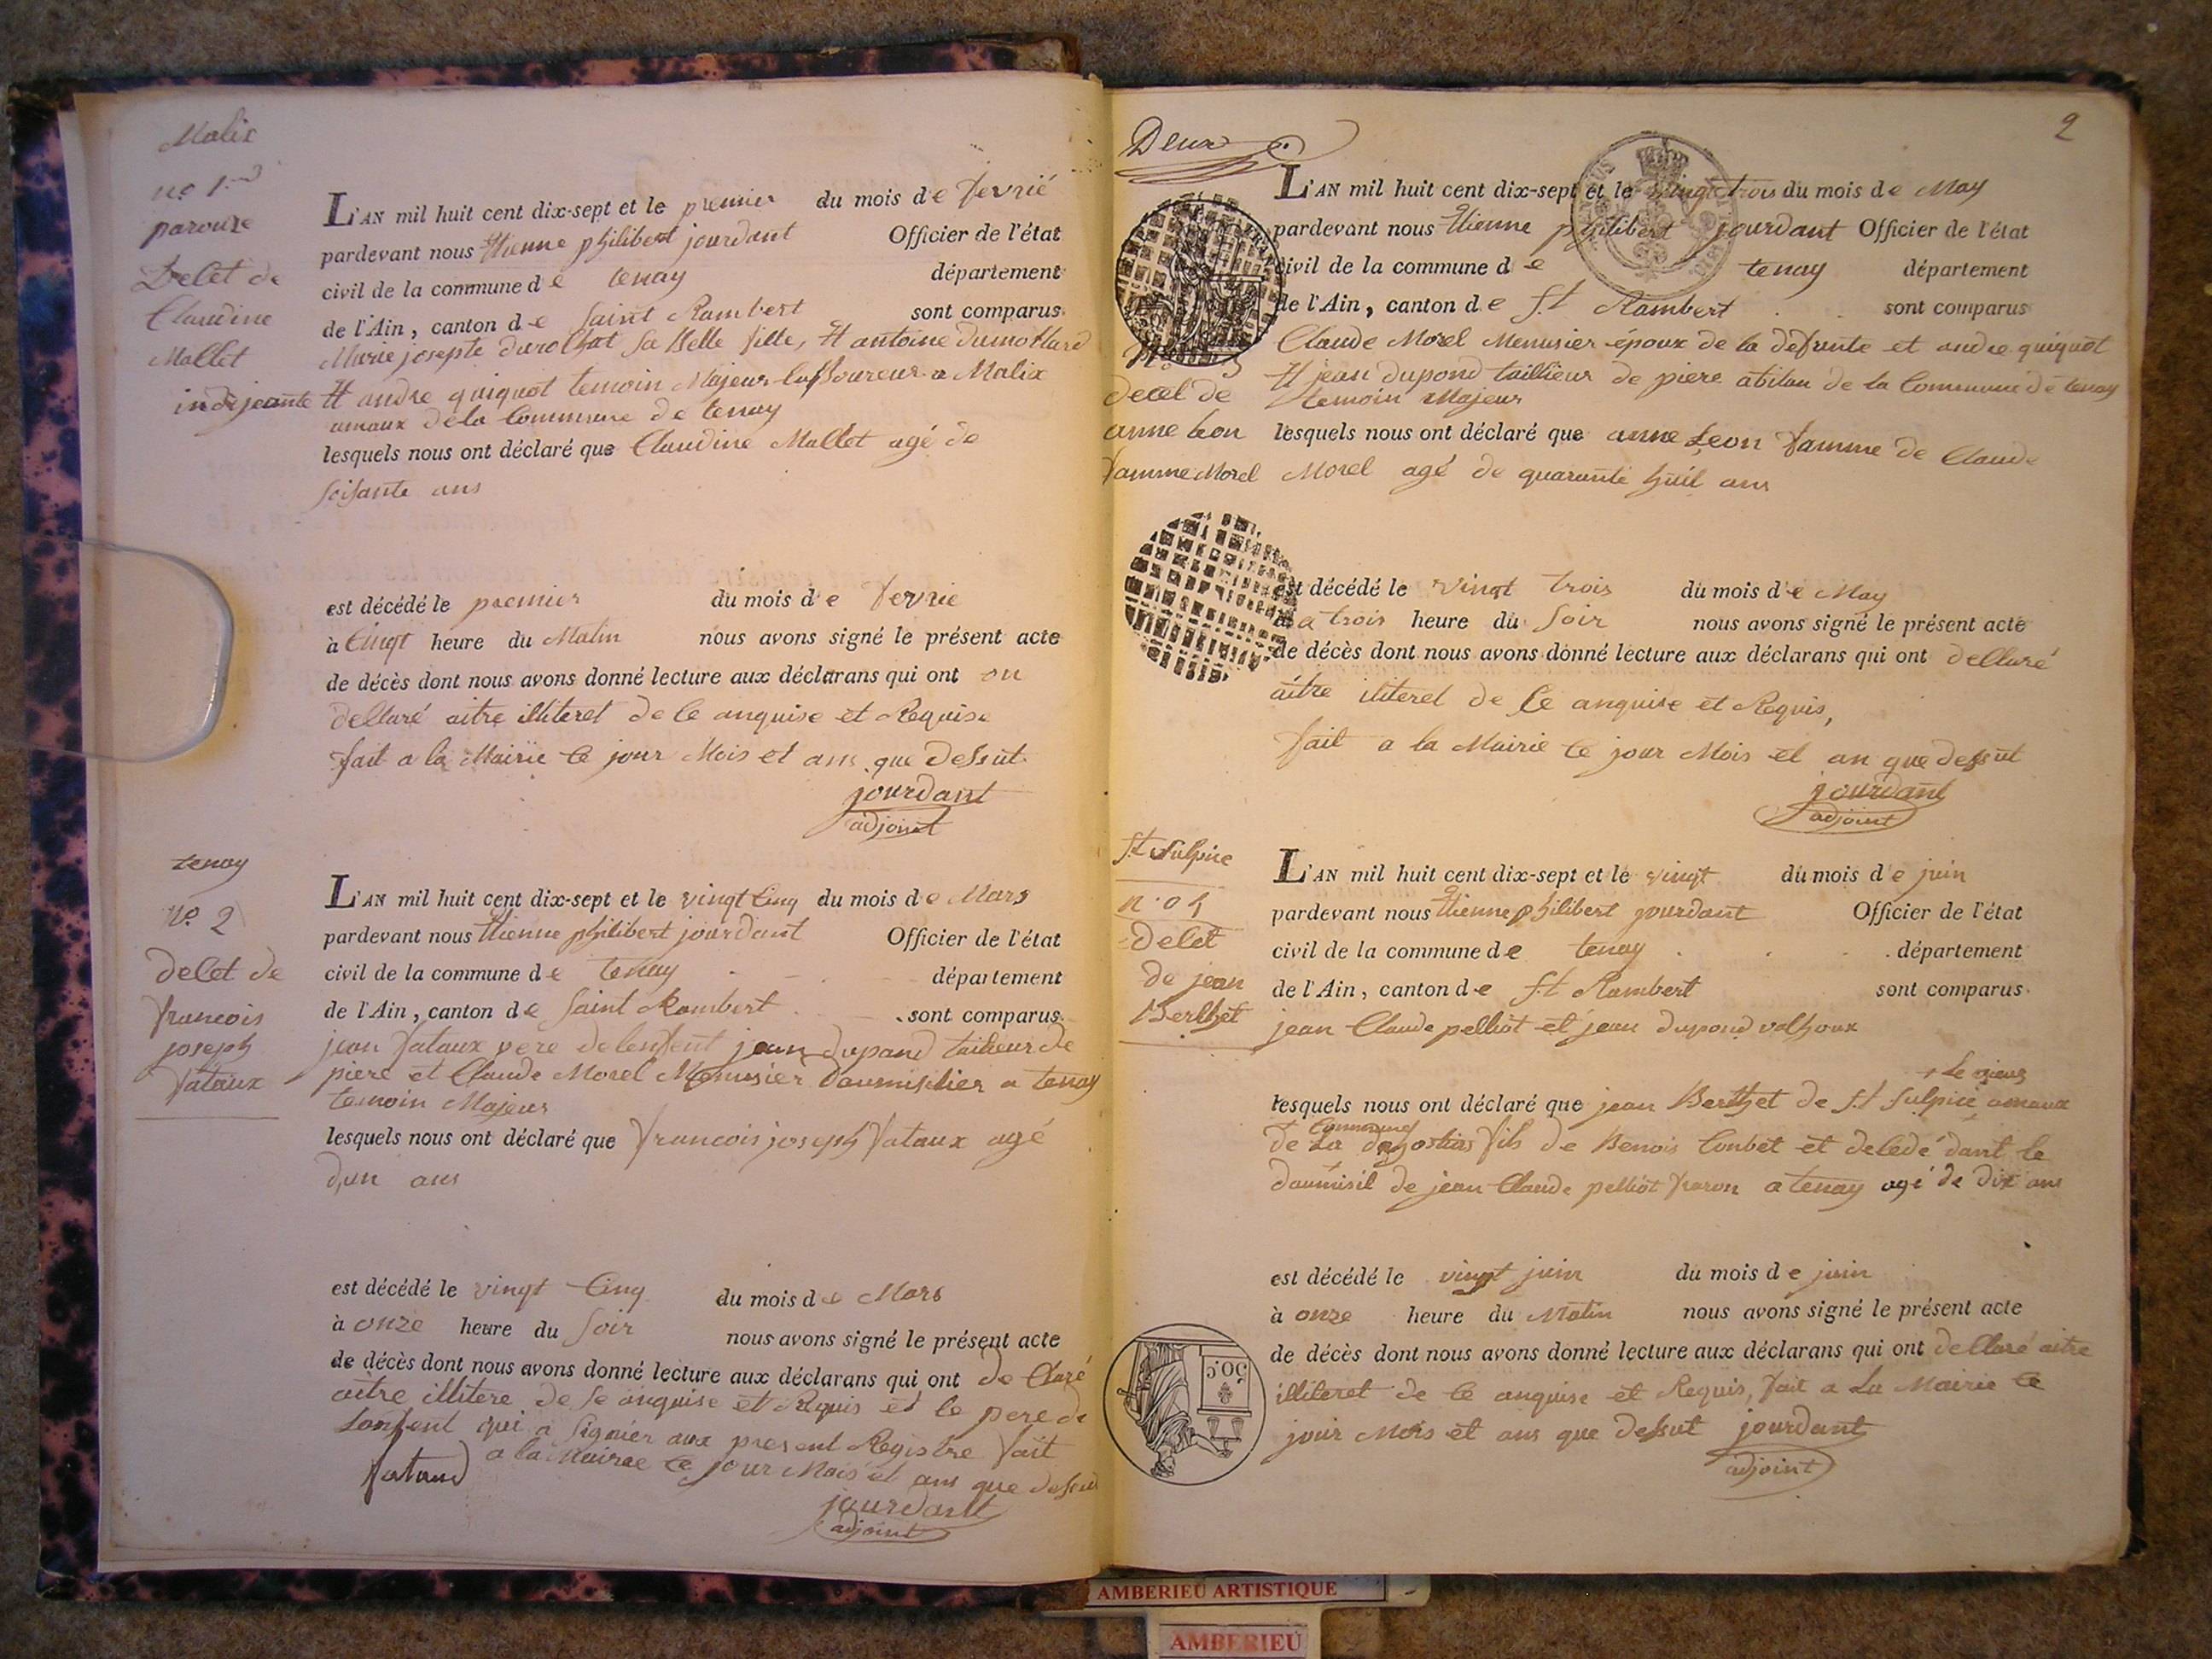 Malix
nº 1
paroisse
Decet de
Claudine
Mallet
indijeante
L'AN mil huit cent dix-sept et le premier du mois de fevrié
pardevant nous Etienne philibert jourdant Officier de l'état
civil de la commune de tenay département
de l'Ain, canton de saint Rambert sont comparus
Marie josepte durochat sa Belle fille, Et antoine dumollard
Et andre quiquot temoin Majeur a Malix
amaux de la Commune de tenay
lesquels nous ont déclaré que Claudine Mallet agé de
soisante ans
est décédé le premier du mois de fevrie
à Cinqt heure du Matin nous avons signé le présent acte
de décès dont nous avons donné lecture aux déclarans qui ont on
dellaré aitre illiteret de ce anquise et Requise
fait a la Mairie ce jour Mois et ans que dessut
jourdant
adjoint
tenay
nº 2
decet de
francois
joseph
fataux
L'AN mil huit cent dix-sept et le vingt Cinq du mois de Mars
pardevant nous Etienne philibert jourdant Officier de l'état
civil de la commune de tenay département
de l'Ain, canton de saint Rambert sont comparus
jean fataux pere delenfent jean dupand tailieur de
piere et Claude Morel Menusier daumisilier a tenay
temoin Majeur
lesquels nous ont déclaré que francois joseph fataux agé
d'un ans
est décédé le vingt Cinq du mois de Mars
à onze heure du soir nous avons signé le présent acte
de décès dont nous avons donné lecture aux déclarans qui ont de Claré
aitre illitere de se anquise et Requis et le pere de
Lonfent qui a signiér aux present Registre fait
a la Mairae ce jour Mois et ans que dessut
fataud
jourdant
adjoint
Deux
2
L'AN mil huit cent dix-sept et le vingt trois du mois de May
pardevant nous Etienne philibert jourdant Officier de l'état
civil de la commune de tenay département
de l'Ain, canton de s.t Rambert sont comparus
Claude Morel Menusier époux de la defunte et andre quiquot
Et jean dupond taillieur de piere abitan de la Commune de tenay
temoin Majeur
Nº 3
decet de
anne leon
famme Morel
lesquels nous ont déclaré que anne Leon famme de Claude
Morel agé de quarante huit ans
est décédé le vingt trois du mois de May
à a trois heure du soir nous avons signé le présent acte
de décès dont nous avons donné lecture aux déclarans qui ont dellaré
aitre iliteret de ce anquise et Requis,
fait a la Mairie ce jour Mois et an que dessut
jourdant
adjoint
s.t Sulpice
n° 04
decet
de jean
Berthet
L'AN mil huit cent dix-sept et le vingt du mois de juin
pardevant nous Etienne philibert jourdant Officier de l'état
civil de la commune de tenay département
de l'Ain, canton de s.t Rambert sont comparus
jean Claude pelliot et jean dupond
+ Le vieux
lesquels nous ont déclaré que jean Berthet de s.t Sulpice amaux
Commune
de La fils de Benois Conbet et decedé dant le
daumisil de jean Claude pelliot a tenay agé de dix ans
est décédé le vingt juin du mois de juin
à onze heure du Matin nous avons signé le présent acte
de décès dont nous avons donné lecture aux déclarans qui ont dellaré aitre
illiteret de ce anquise et Requis, fait a La Mairie ce
jour Mois et ans que dessut jourdant
adjoint
50C
AMBERIEU ARTISTIQUE
AMBERIEU